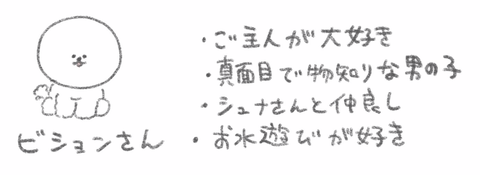 ・ご主人が大好き
・真面目で物知りな男の子
・シュナさんと仲良し
・お水遊びが好き
ビションさん